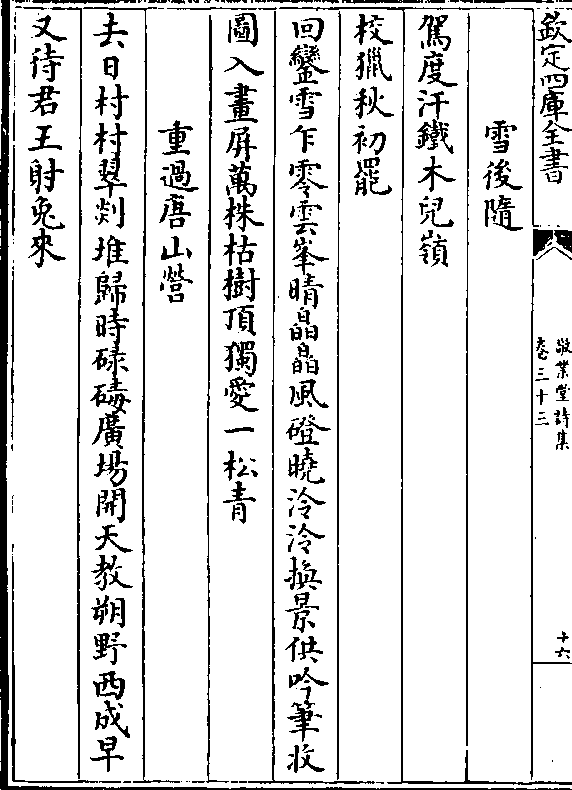 欽定四庫全書
敬業堂詩集
卷三十三
十六
雪後隨
駕度汗鐵木兒嶺
校獵秋初罷
回鑾雪乍零雲峯晴晶晶風磴曉泠泠換景供吟筆收
圖入畫屏萬株枯樹頂獨愛一松青
重過唐山營
去日村村翠剡堆歸時碌碡廣場開天教朔野西成早
又待君王射兔來